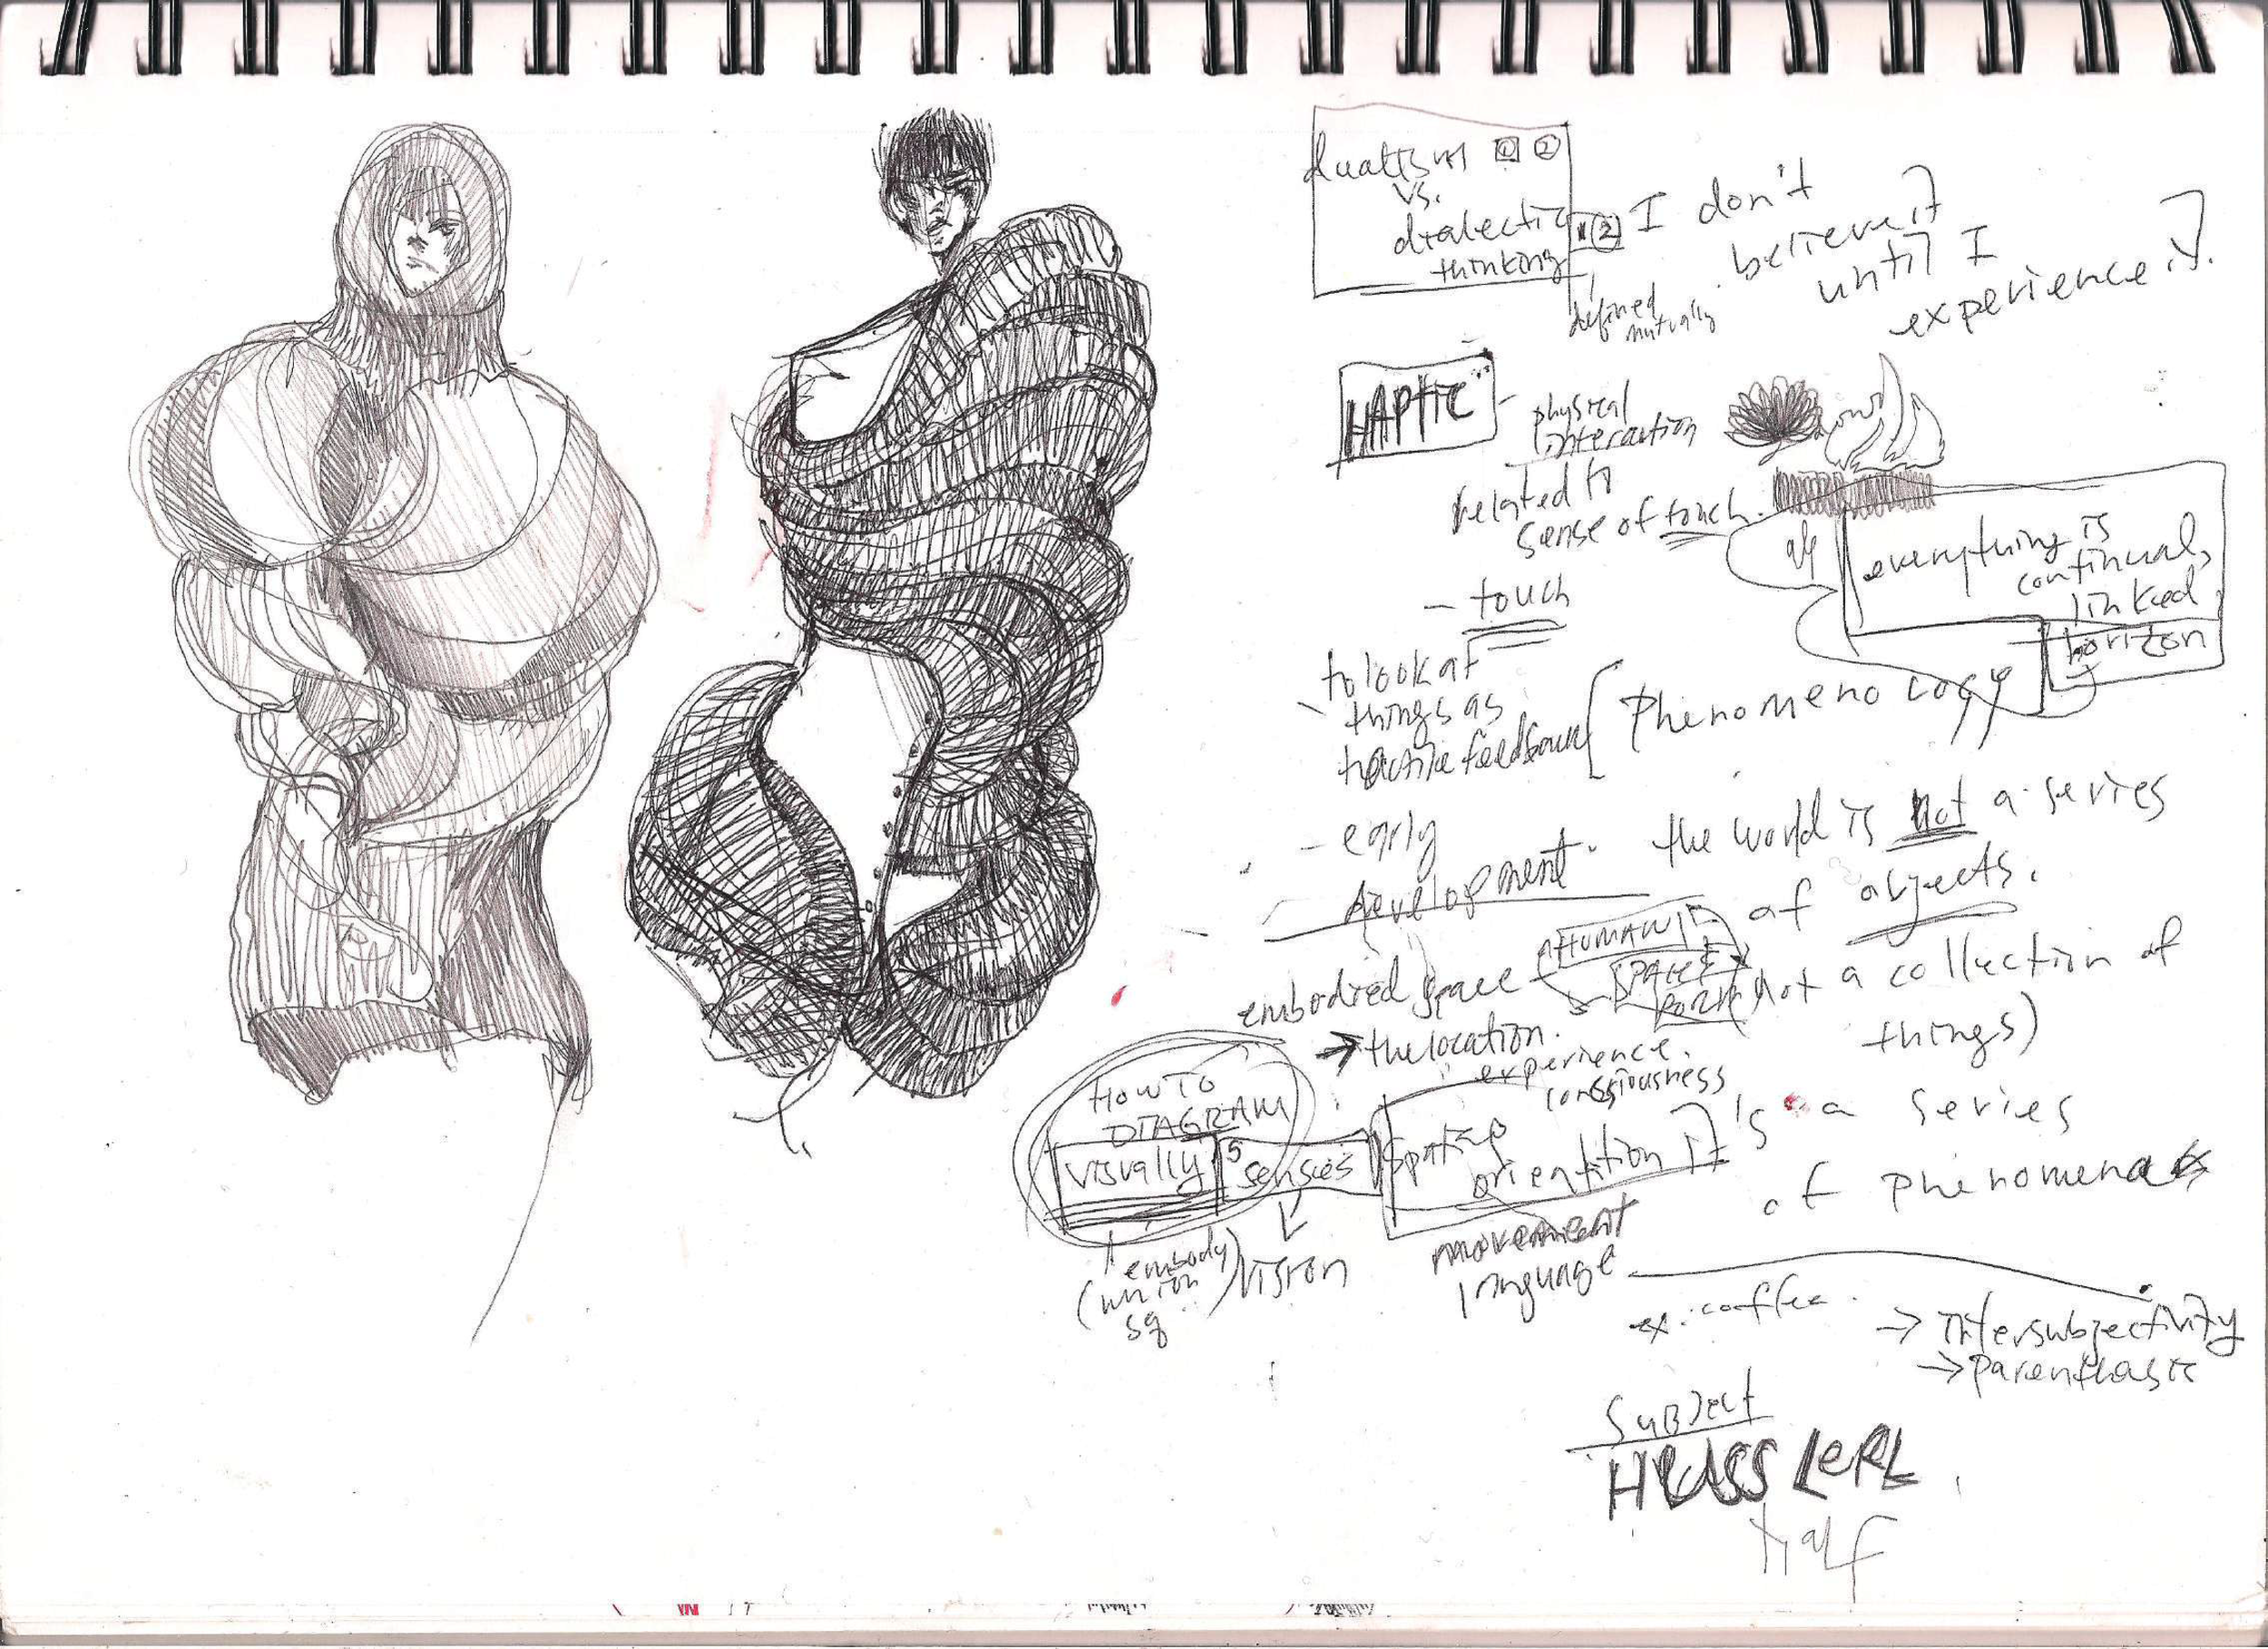 dualism 1 2
vs.
dialectic
thinking
2
defined
mutually
I don't
believe it
until I
experience it.
HAPTIC
physical
interaction
related to
sense of touch.
- touch
to look at
things as
tactile
- early
development.
everything is
continual,
linked
horizon
of
Phenomenology
the world is not a series
of objects.
(not a collection of
things)
It's a series
of phenomena
embodied space
HUMAN
SPACE
→ the location.
experience.
consiousness
HOW TO
DIAGRAM
visually
5
senses
orientation
embody
(union
sq
vision
movement
language
ex. coffee.
→ Intersubjectivity
→ parenthasis
SUBJECT
HUSSLERL
half